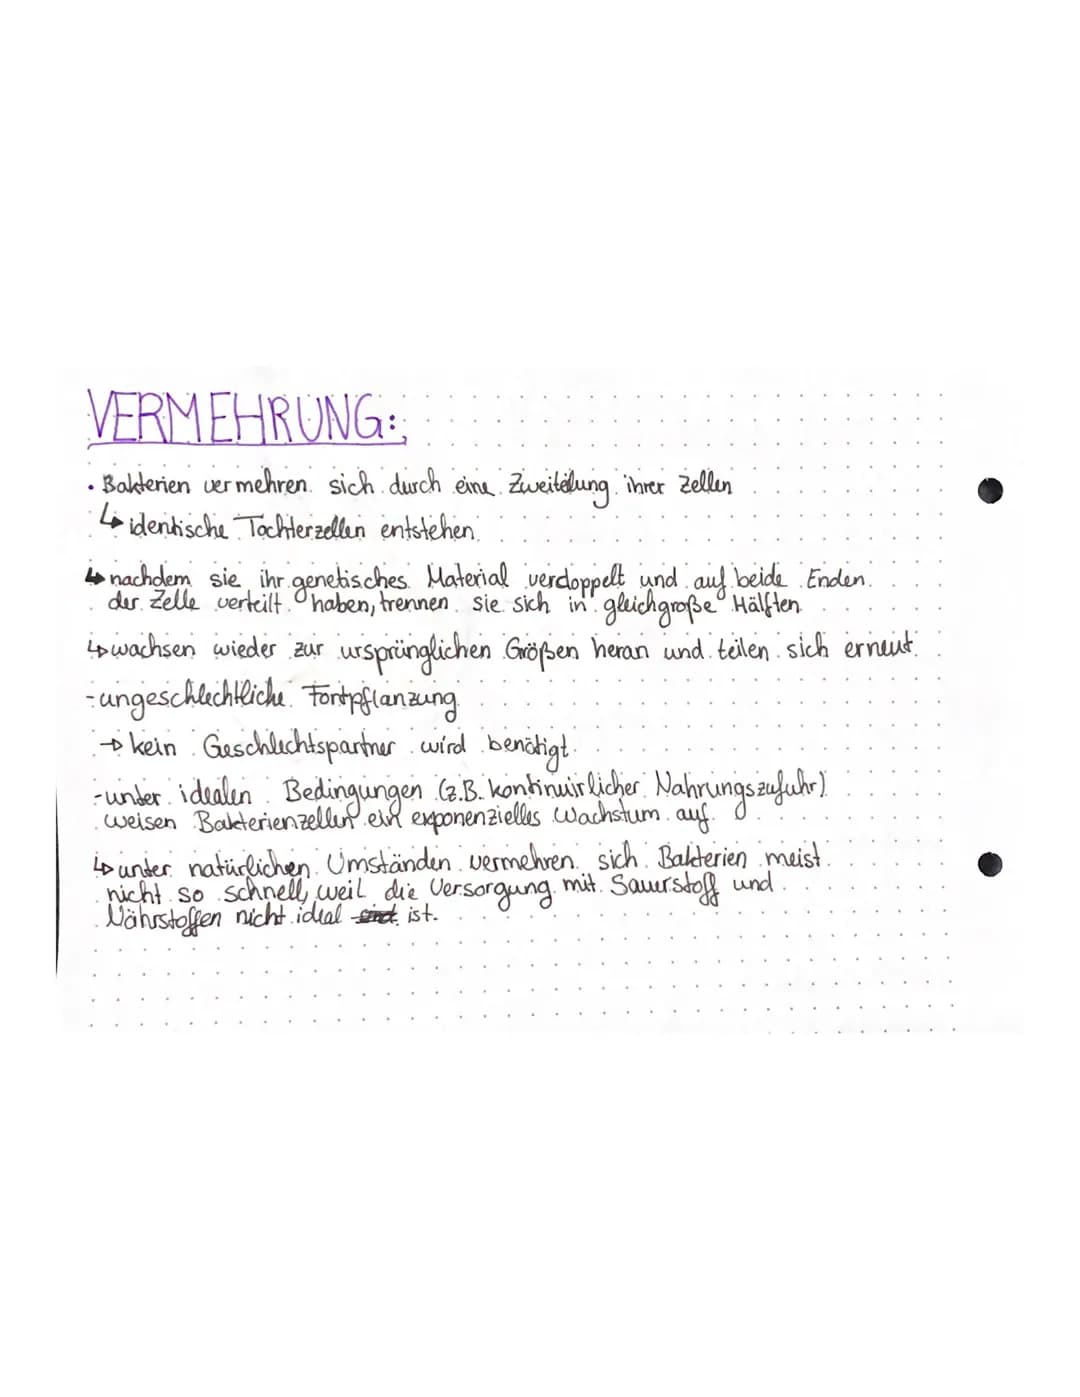 VERMEHRUNG:
• Bakterien vermehren sich durch eine Zweiteilung ihrer Zellen
↳ identische Tochterzellen entstehen
↳ nachdem sie ihr genetisches Material verdoppelt und auf beide Enden
der Zelle verteilt haben, trennen sie sich in gleichgroße Hälften
↳ wachsen wieder zur ursprünglichen Größen heran und teilen sich erneut.
- ungeschlechtliche Fortpflanzung
→ kein Geschlechtspartner wird benötigt.
- unter idealen Bedingungen (z.B. kontinuirlicher Nahrungszufuhr)
weisen Bakterienzellen ein exponenzielles Wachstum auf.
↳ unter natürlichen Umständen vermehren sich Bakterien meist
nicht so schnell, weil die Versorgung mit Sauerstoff und
Nährstoffen nicht ideal sind ist.